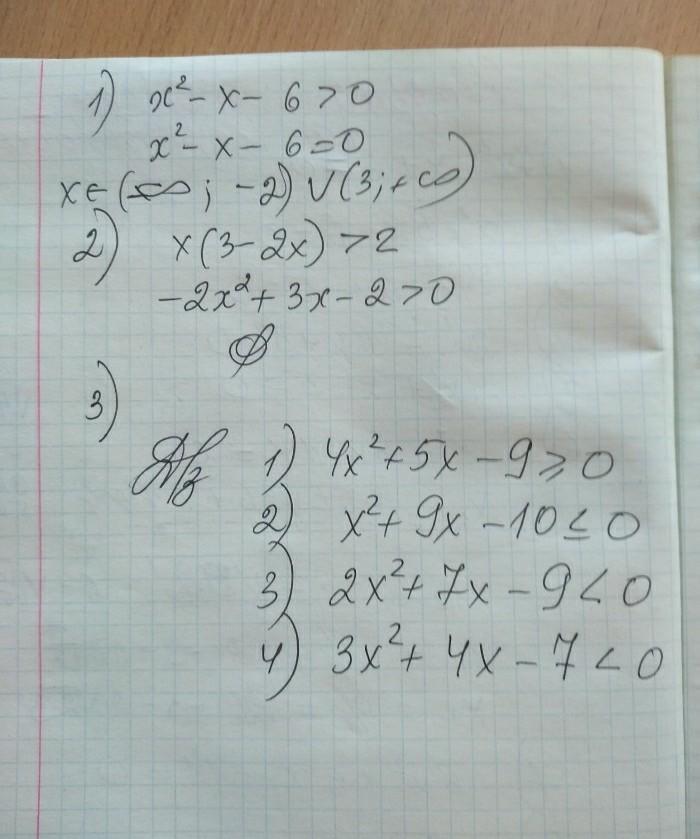 1) x² - x - 6 > 0
x² - x - 6 = 0
x ∈ (-∞; -2) ∪ (3; +∞)
2) x(3 - 2x) > 2
-2x² + 3x - 2 > 0
∅
3)
Д/з 1) 4x² + 5x - 9 ⩾ 0
2) x² + 9x - 10 ≤ 0
3) 2x² + 7x - 9 < 0
4) 3x² + 4x - 7 < 0